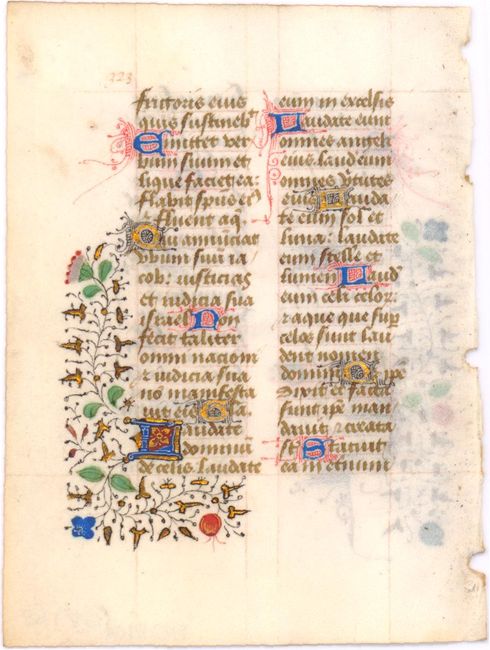 223
frigoris eius
quis sustineb't
Emittet ver
bum suum et
lique faciet ea:
flabit sp̄us ei'
& fluent aq̄
Qui annūciat
v̄bum suū ia
cob: iusticias
et iudicia sua
israel Non
fecit taliter
omni nacioni
& iudicia sua
nō manifesta
uit eis La
Laudate
dominū
de celis laudate
eum in excelsis
Laudate eum
omnes angeli
eius: laudate eum
omnes v̄tutes
eius Lauda
te eum sol et
luna: laudate
eum stelle et
lumen Laud'
eum celi celor:
& aque que sup̄
celos sunt lau
dent nomen
domini Q ip̄e
Dixit et facta
sunt: ip̄e man
dauit & creata
st̄ Statuit
ea in eternum